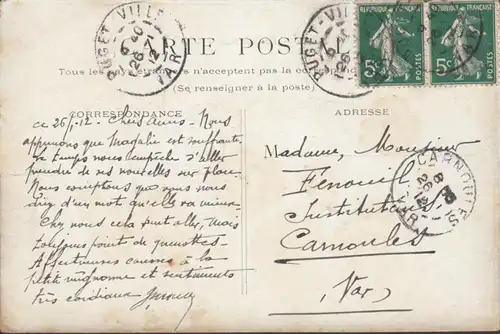 PUGET-VILLE
6 40
26 -1
12
VAR
PUGET-VILLE
6
26
RÉPUBLIQUE FRANÇAISE
5c POSTES
RÉPUBLIQUE FRANÇAISE
5c POSTES
CARTE POSTALE
Tous les pays étrangers n'acceptent pas la correspondance
(Se renseigner à la poste)
CORRESPONDANCE
ADRESSE
ce 26/1.12 - Chers amis - Nous
apprenons que Magalie est souffrante
le temps nous empêche d'aller
prendre de ses nouvelles sur place
Nous comptons que vous nous
direz d'un mot qu'elle va mieux
Chez nous cela peut aller, mais
toujours point de
Affectueuses caresses à la
petite mignonne et sentiments
très cordiaux
Madame, Monsieur
Fenouil
Instituteurs,
Carnoules
(Var)
CARNOULES
8
26 -1
12
VAR